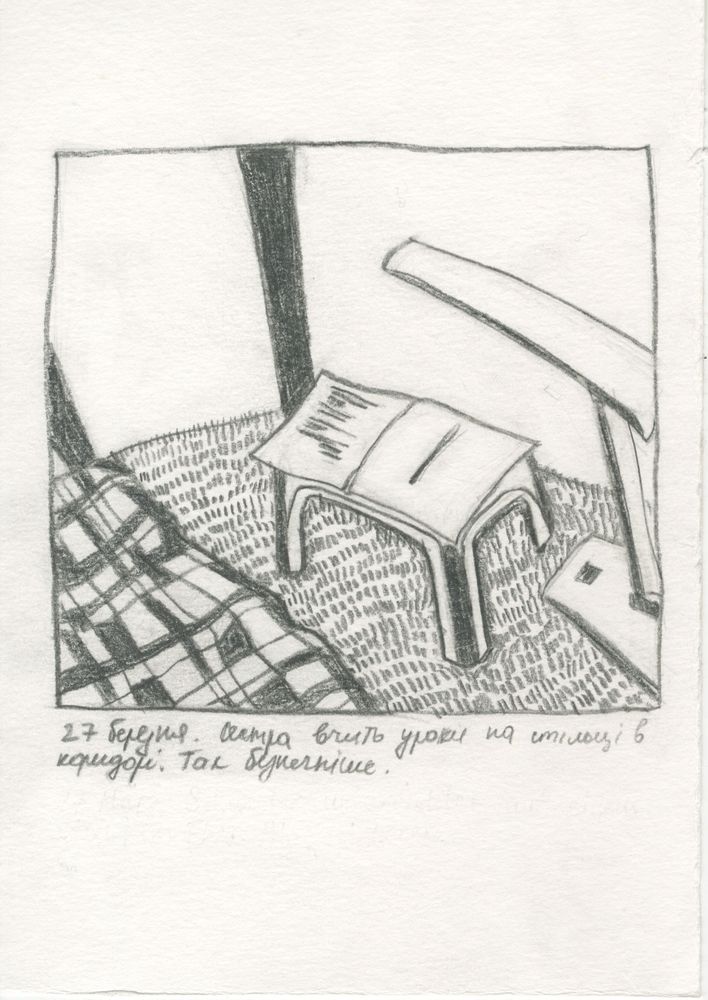 27 березня. Сестра вчить уроки на стільці в
коридорі. Так безпечніше.